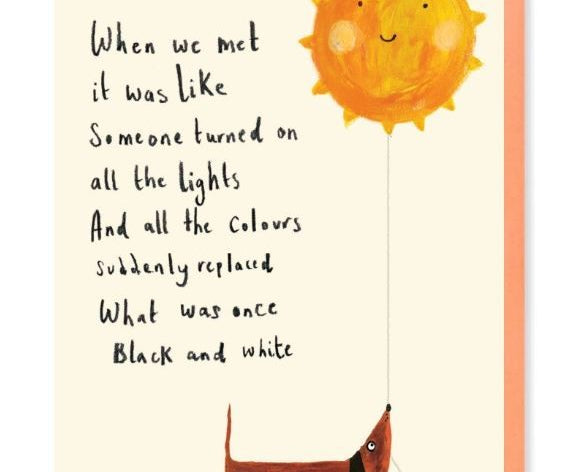 When we met
it was like
Someone turned on
all the lights
And all the colours
suddenly replaced
What was once
Black and white